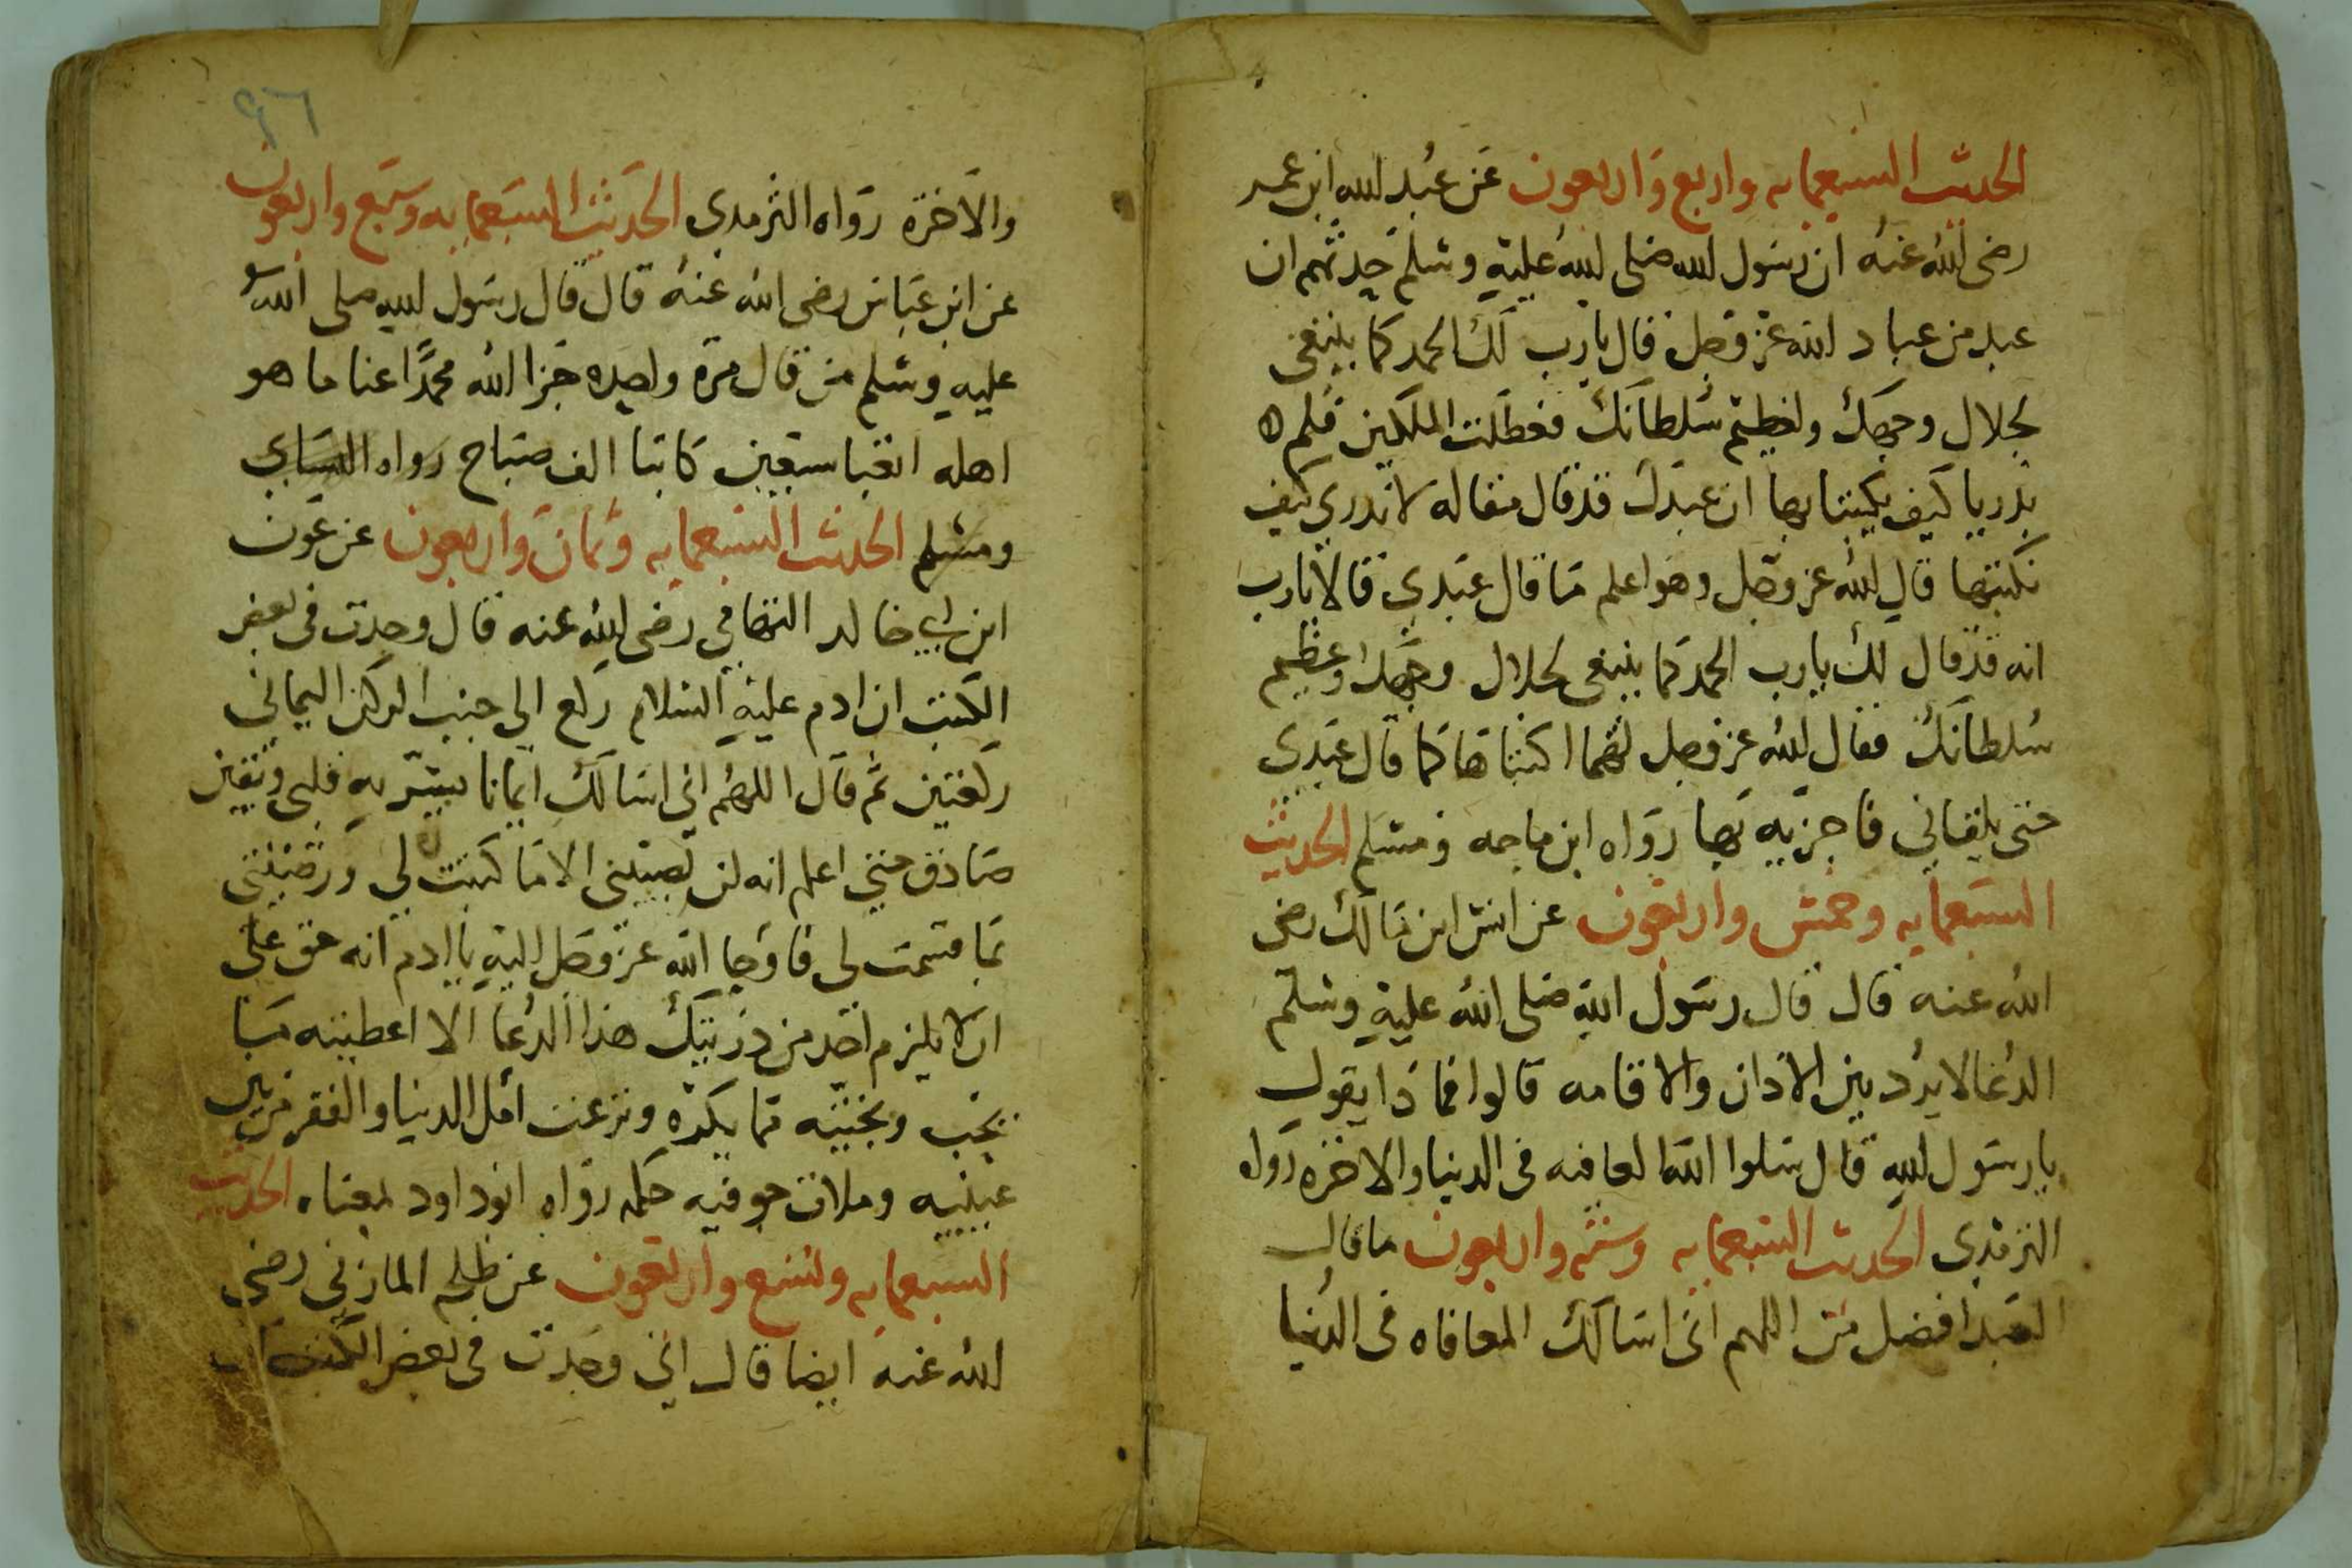 الحديث السبعمايه واربع واربعون عن عبد الله ابن عمر
رضى الله عنه ان رسول الله صلى الله عليه وسلم حدثهم ان
عبد من عباد الله عز وجل قال يا رب لك الحمد كما ينبغى
لجلال وجهك ولعظيم سلطانك فعطلت الملكين فلم
يدريا كيف يكتبا بها ان عبدك قد قال مقاله لا ندري كيف
نكتبها قال الله عز وجل وهو اعلم ما قال عبدي قالا يا رب
انه قد قال لك يا رب الحمد كما ينبغى لجلال وجهك وعظيم
سلطانك فقال الله عز وجل لهما اكتباها كما قال عبدي
حتى يلقاني فاجزيه بها رواه ابن ماجه ومسلم الحديث
السبعمايه وخمس واربعون عن انس ابن مالك رضى
الله عنه قال قال رسول الله صلى الله عليه وسلم
الدعا لا يرد بين الاذان والاقامه قالوا فماذا يقول
يا رسول الله قال سلوا الله العافيه فى الدنيا والاخره رواه
الترمذي الحديث السبعمايه وسته واربعون ما قال
العبد افضل من اللهم انى اسالك المعافاه فى الدنيا
٩٦
والاخره رواه الترمدي الحديث السبعمايه وسبع واربعون
عن ابن عباس رضى الله عنه قال قال رسول الله صلى الله
عليه وسلم من قال مرة واحده جزا الله محمدا عنا ما هو
اهله اتعبا سبعين كاتبا الف صباح رواه النساي
ومسلم الحديث السبعمايه وثمان واربعون عن عون
ابن ابي خالد رضى الله عنه قال وجدت فى بعض
الكتب ان ادم عليه السلام ركع الى جنب الركن اليماني
ركعتين ثم قال اللهم اني اسالك ايمانا يبشر به قلبى ويقين
صادق حتى اعلم انه لن تصيبنى الا ما كتبت لي ورضيتنى
بما قسمت لى فاوحا الله عز وجل اليه يا ادم انه حق على
ان لا يلزم احد من ذريتك هذا الدعا الا اعطيته ما
يحب ونجيته مما يكره ونزعت امل الدنيا والفقر من بين
عينيه وملات جوفه حكمه رواه ابو داود بمعناه الحديث
السبعمايه وتسع واربعون عن المازني رضى
الله عنه ايضا قال اني وجدت فى بعض الكتب ان